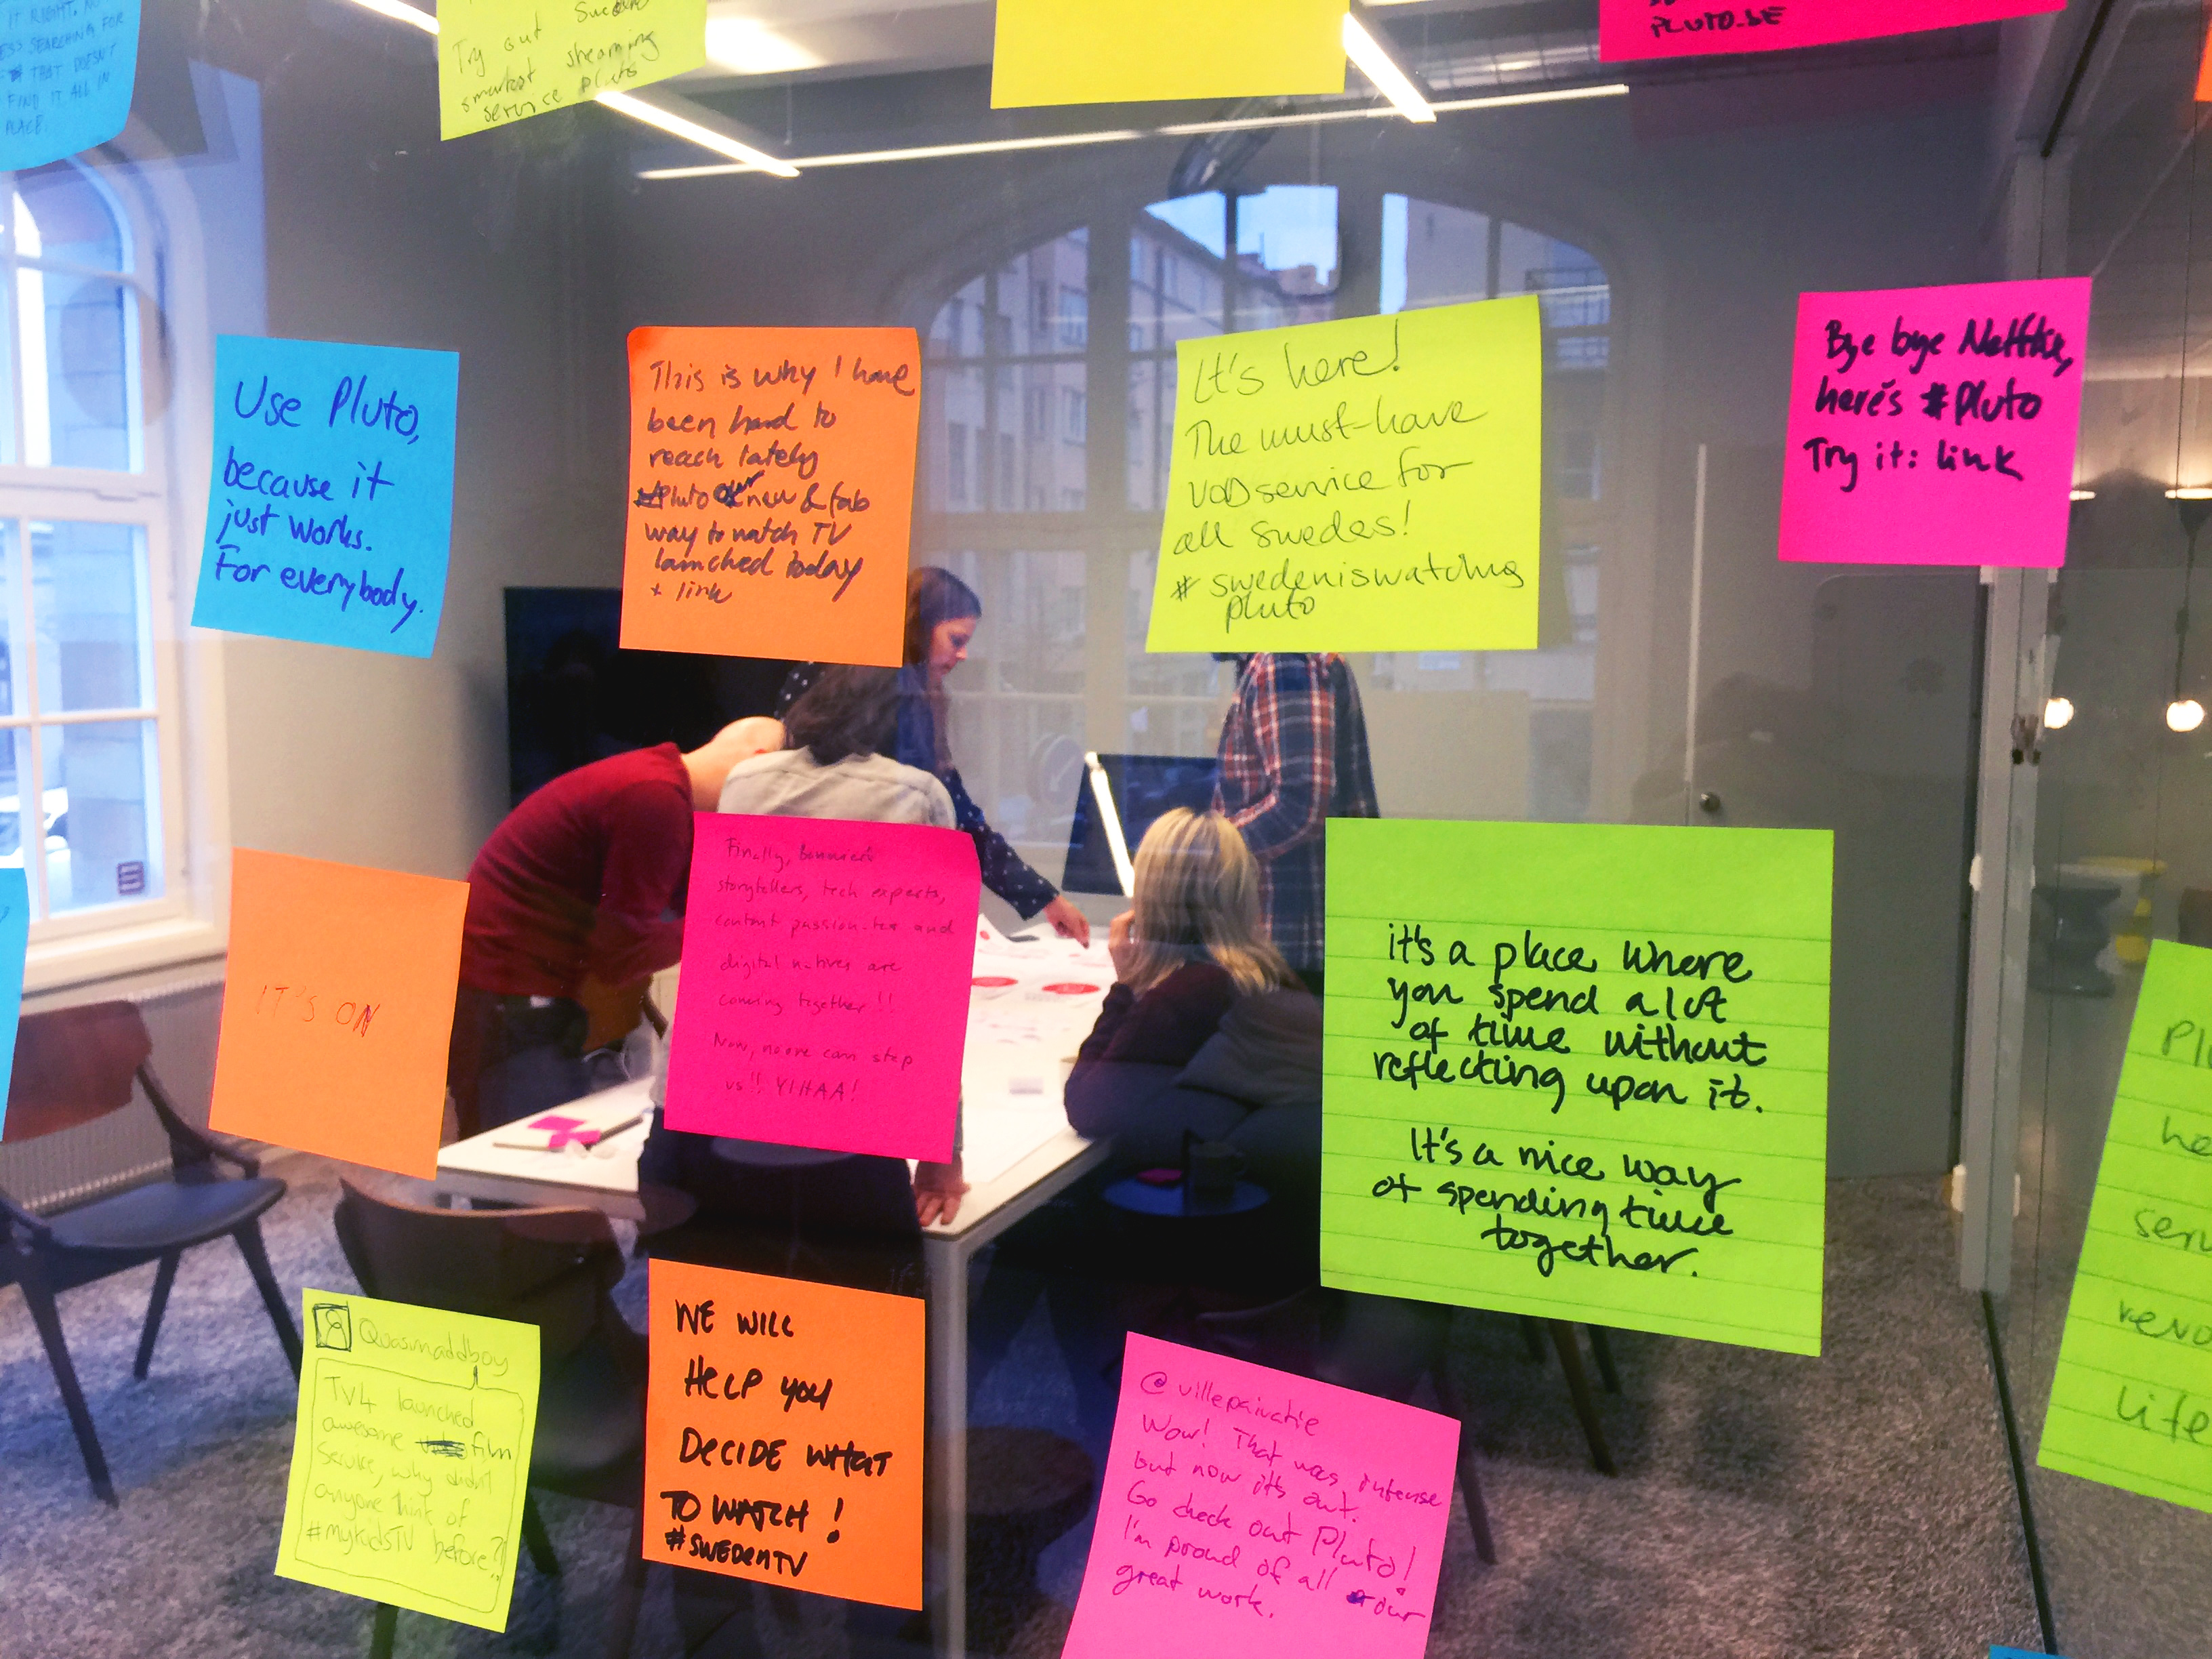 IT RIGHT. NO
SEARCHING FOR
THAT DOESN'T
FIND IT ALL IN
PLACE.
Try out Sweden
smartest streaming
service pluto
PLUTO.SE
Use Pluto,
because it
just works.
For everybody.
This is why I have
been hard to
reach lately
#Pluto our new & fab
way to watch TV
launched today
+ link
It's here!
The must-have
VOD service for
all Swedes!
# swedeniswatching
pluto
Bye bye Netflix,
here's #Pluto
Try it: link
IT'S ON
Finally,
storytellers, tech experts,
content and
digital natives are
coming together!!
Now, noone can stop
us!! YIHAA!
it's a place where
you spend a lot
of time without
reflecting upon it.
It's a nice way
of spending time
together.
Pl
he
serv
revo
Life
Quasimaddboy
TV4 launched
awesome film
service, why didn't
anyone think of
#mykidsTV before?!
WE WILL
HELP YOU
DECIDE WHAT
TO WATCH!
#SWEDENTV
@villepaivatie
Wow! That was intense
but now it's out.
Go check out Pluto!
I'm proud of all our
great work.